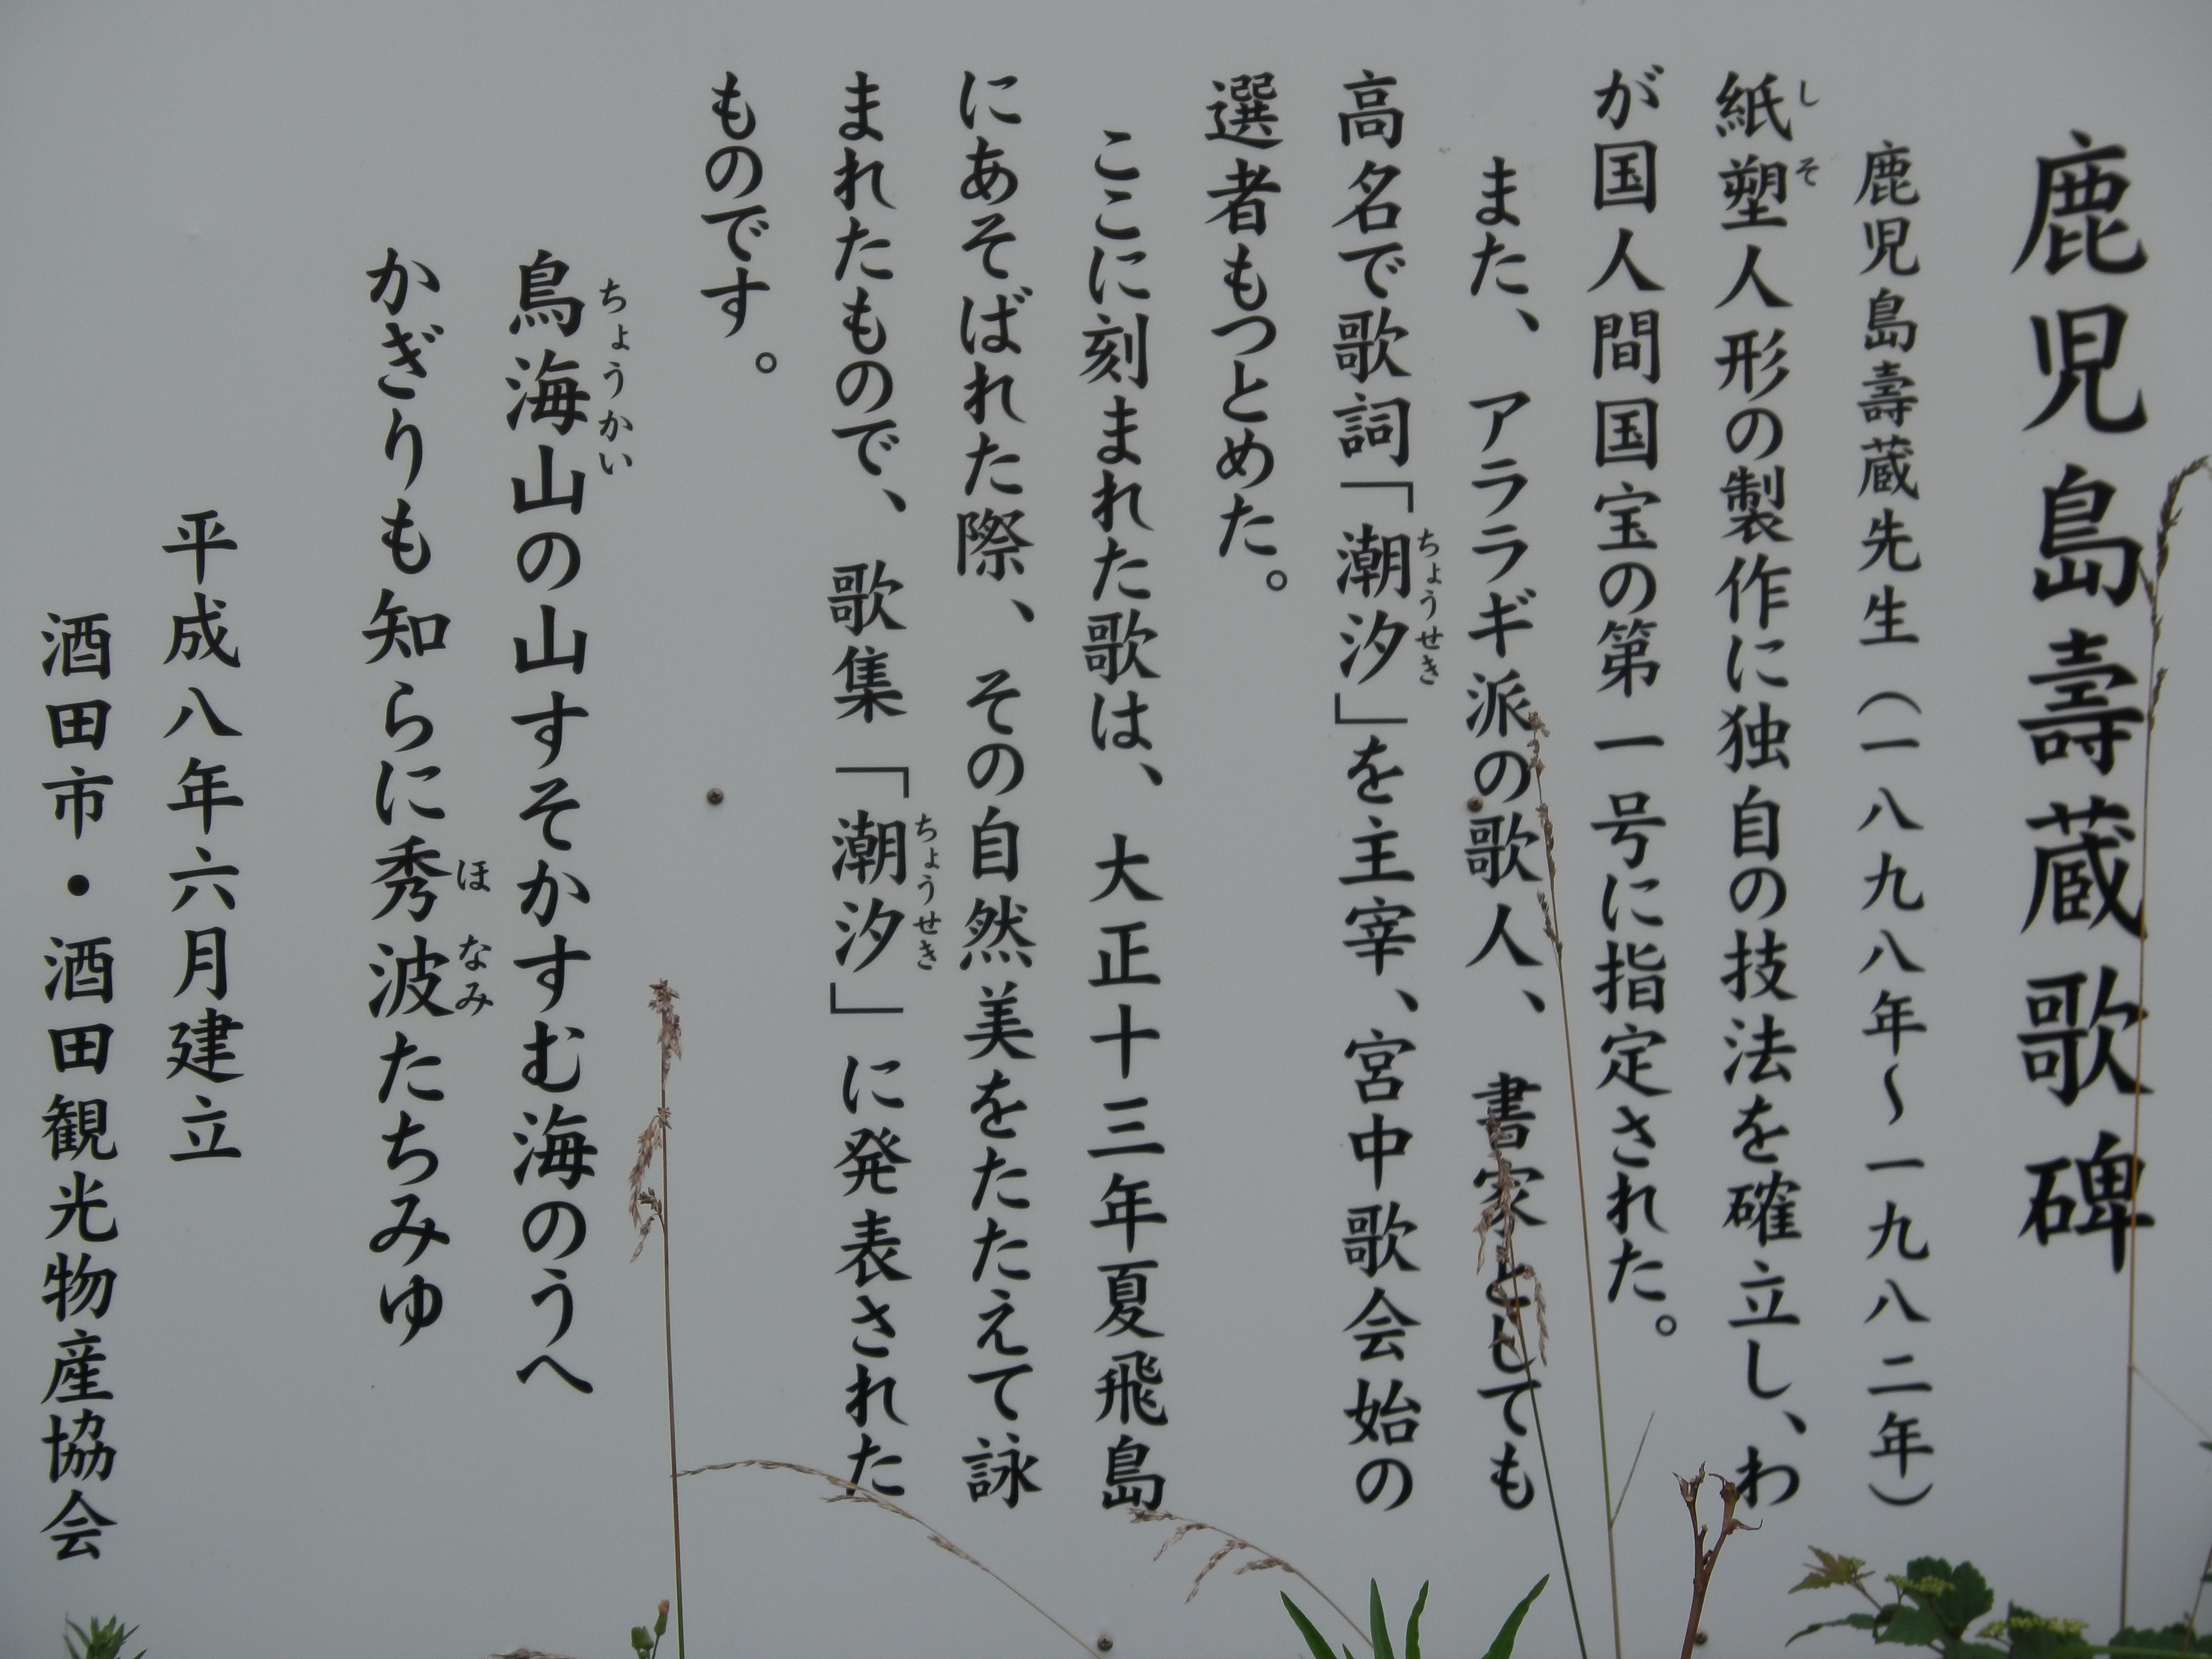 鹿児島壽蔵歌碑
鹿児島壽蔵先生（一八九八年～一九八二年）
紙塑人形の製作に独自の技法を確立し、わ
が国人間国宝の第一号に指定された。
また、アララギ派の歌人、書家としても
高名で歌詞「潮汐」を主宰、宮中歌会始の
選者もつとめた。
ここに刻まれた歌は、大正十三年夏飛島
にあそばれた際、その自然美をたたえて詠
まれたもので、歌集「潮汐」に発表された
ものです。
鳥海山の山すそかすむ海のうへ
かぎりも知らに秀波たちみゆ
平成八年六月建立
酒田市・酒田観光物産協会